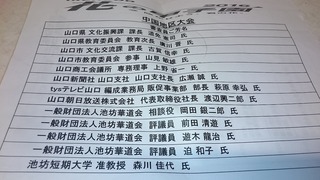 2016
中国地区大会
審査員ご芳名
山口県 文化振興課 課長
山口県教育委員会 教育次長
山口市 文化交流課 課長 古賀 信幸 氏
山口市教育委員会 参事 山見 敏雄 氏
山口商工会議所 専務理事 上野 省一 氏
山口新聞社 山口支社 山口支社長 広瀬 誠 氏
tysテレビ山口 編成業務局 販促事業部 部長 萩原 幸弘 氏
山口朝日放送株式会社 代表取締役社長 渡辺 興二郎 氏
一般財団法人池坊華道会 相談役 岡田 銀二郎 氏
一般財団法人池坊華道会 評議員 前田 清遊 氏
一般財団法人池坊華道会 評議員 遊木 龍治 氏
一般財団法人池坊華道会 評議員 迫 和子 氏
池坊短期大学 准教授 森川 佳代 氏